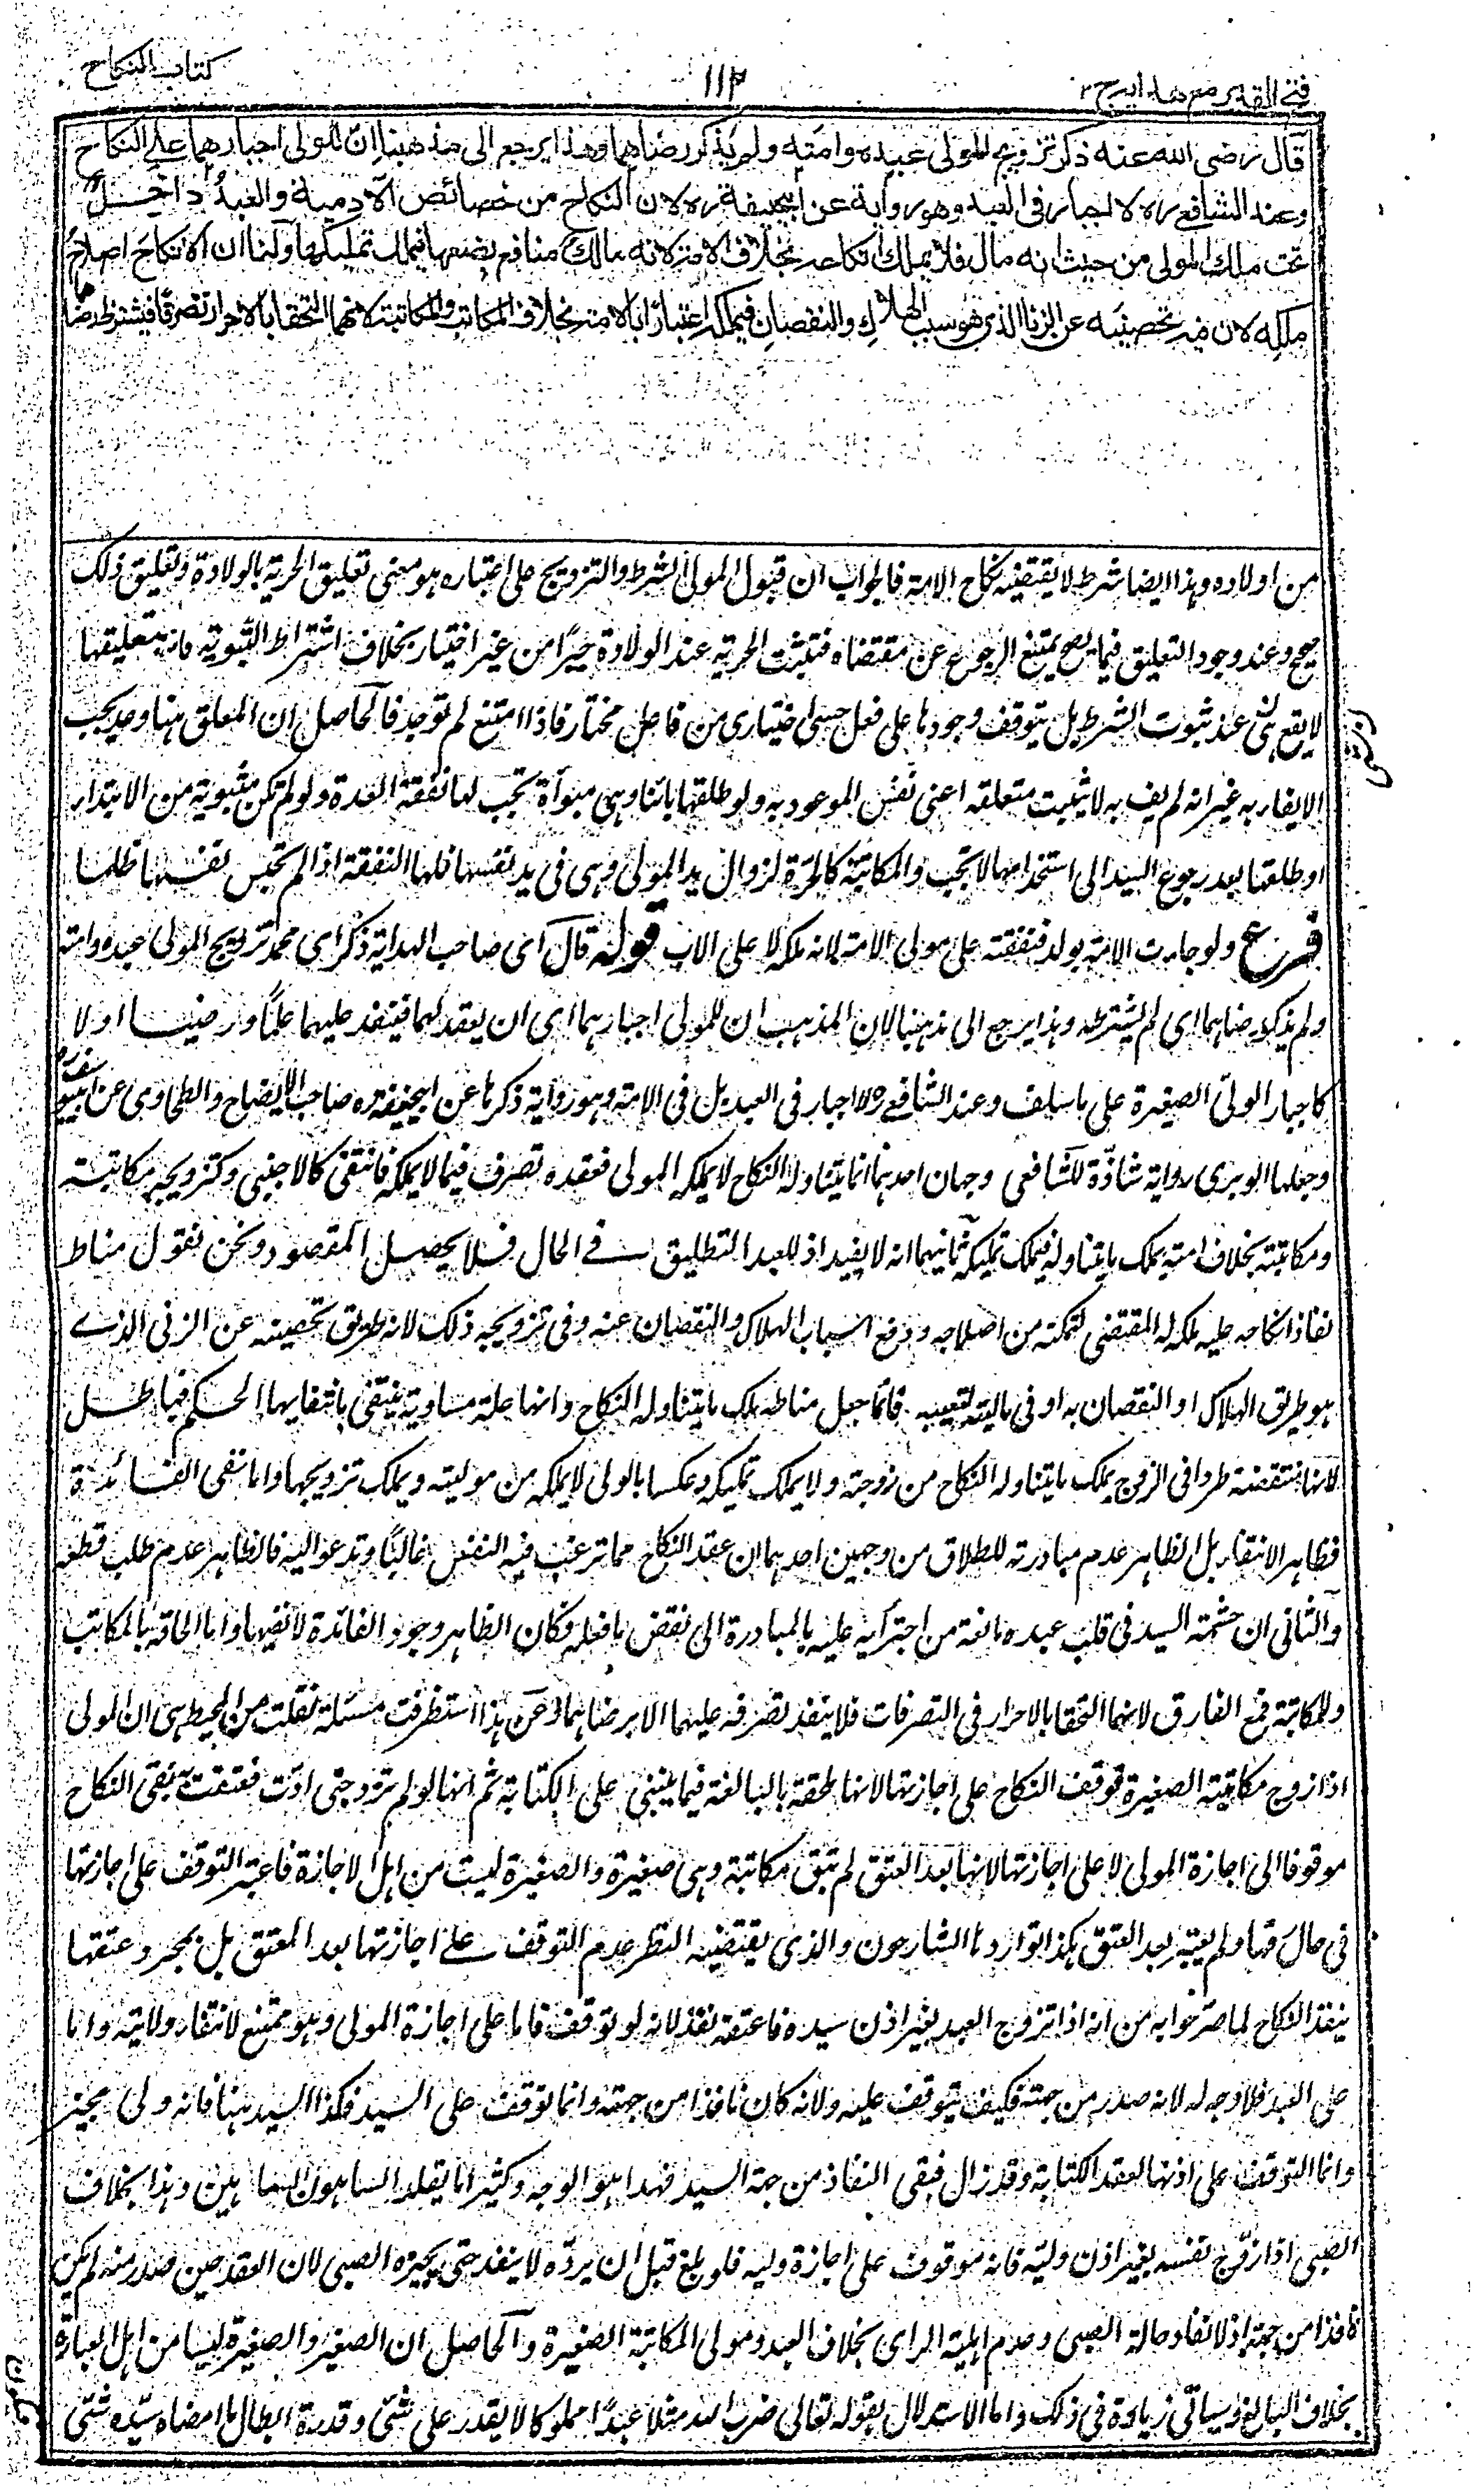 فتح القدير مع هدايه ج ٢
١١٢
كتاب النكاح
قال رضى الله عنه ذكر تزويج المولى عبيده وامته ولم يذكر رضاهما وهذا يرجع الى مذهبنا ان للمولى اجبارهما على النكاح
وعند الشافعى ره لا اجبار فى العبد وهو رواية عن ابيحنيفة ره لان النكاح من خصائص الآدمية والعبد داخل
تحت ملك المولى من حيث انه مال فلا يملك انكاحه بخلاف الامة لانه مالك منافع بضعها فيملك تمليكها ولنا ان الانكاح اصلاح
ملكه لان فيه تحصينه عن الزنا الذى هو سبب الهلاك والنقصان فيملكه اعتبارا بالامة بخلاف المكاتب والمكاتبة لانهما التحقا بالاحرار تصرفا فيشترط رضاهما
من اولاده وهذا ايضا شرط لا يقتضيه نكاح الامة فالجواب ان قبول المولى الشرط والتزويج على اعتباره هو معنى تعليق الحرية بالولادة وتعليق ذلك
صحيح وعند وجود التعليق فيما يصح يمتنع الرجوع عن مقتضاه فتثبت الحرية عند الولادة جبرًا من غير اختيار بخلاف اشتراط التبوية فان بتعليقها
لا يقع هى عند ثبوت الشرط بل يتوقف وجودها على فعل حسى اختيارى من فاعل مختار فاذا امتنع لم توجد فالحاصل ان المعلق هنا وعد يجب
الايفاء به غير انه لم يف به لا يثبت متعلقه اعنى نفس الموعود به ولو طلقها بائنا وهى مبوأة تجب لها نفقة العدة ولو لم تكن مبوية من الابتداء
او طلقها بعد رجوع السيد الى استخدامها لا تجب والمكاتبة كالحرة لزوال يد المولى وهى فى يد نفسها فلها النفقة اذا لم تحبس نفسها ظلما
فرع ولو جاءت الامة بولد فنفقته على مولى الامة لانه ملكه لا على الاب قوله قال اى صاحب الهداية ذكر اى محمد تزويج المولى عبده وامته
ولم يذكر رضاهما اى لم يشترطه وهذا يرجع الى مذهبنا لان المذهب ان للمولى اجبارهما اى ان يعقد لهما فينفذ عليهما علما ورضيا اولا
كاجبار الولى الصغيرة على ما سلف وعند الشافعى ره لا اجبار فى العبد بل فى الامة وهو رواية ذكرها عن ابيحنيفة ره صاحب الايضاح والطحاوى عن ابيوسف ره
وجعلها الوبرى رواية شاذة للشافعى وجهان احدهما انما يتناوله النكاح لا يملكه المولى فعقده تصرف فيما لا يملكه فانتفى كالاجنبى وكتزويجه مكاتبه
ومكاتبته بخلاف امته يملك ما يتناوله فيملك تمليكه ثانيهما انه لا يفيد اذ للعبد التطليق فى الحال فلا يحصل المقصود ونحن نقول مناط
نفاذ انكاحه عليه ملكه له المقتضى لتمكنه من اصلاحه ودفع اسباب الهلاك والنقصان عنه وفى تزويجه ذلك لانه طريق تحصينه عن الزنى الذى
هو طريق الهلاك او النقصان به او فى ماليته لتعيبه فانما جعل مناطه ملك ما يتناوله النكاح وانها علة مساوية ينتفى بانتفائها الحكم فباطل
لانها منتقضة طردا فى الزوج يملك ما يتناوله النكاح من زوجته ولا يملك تمليكه وعكسا بالولى لا يملكه من موليته ويملك تزويجها واما نفى الفائدة
فظاهر الانتفاء بل الظاهر عدم مبادرته للطلاق من وجهين احدهما ان عقد النكاح مما ترغب فيه النفس غالبًا وتدعو اليه فالظاهر عدم طلب قطعه
والثانى ان حشمة السيد فى قلب عبده مانعة من اجترائه عليه بالمبادرة الى نقض ما فعله فكان الظاهر وجود الفائدة لا نفيها واما الحاقه بالمكاتب
والمكاتبة فمع الفارق لانهما التحقا بالاحرار فى التصرفات فلا ينفذ تصرفه عليهما الا برضاهما وعن هذا استظرفت مسئلة نقلت من المحيط هى ان المولى
اذا زوج مكاتبته الصغيرة توقف النكاح على اجازتها لانها ملحقة بالبالغة فيما يبتنى على الكتابة ثم انها لو لم ترد حتى ادت فعتقت بقى النكاح
موقوفا الى اجازة المولى لا على اجازتها لانها بعد العتق لم تبق مكاتبة وهى صغيرة والصغيرة ليست من اهل الاجازة فاعتبر التوقف على اجازتها
فى حال رقها ولم يعتبر بعد العتق هكذا تواردها الشارحون والذى يقتضيه النظر عدم التوقف على اجازتها بعد العتق بل بمجرد عتقها
ينفذ النكاح لما صرحوا به من انه اذا تزوج العبد بغير اذن سيده فاعتقه نفذ لانه لو توقف فاما على اجازة المولى وهو ممتنع لانتفاء ولايته واما
على العبد فلا وجه له لانه صدر من جهته فكيف يتوقف عليه ولانه كان نافذا من جهته وانما توقف على السيد فكذا السيد هنا فانه ولى مجبر
وانما التوقف على اذنها لعقد الكتابة وقد زال فبقى النفاذ من جهة السيد فهذا هو الوجه وكثيرا ما يقلد الساهون الساهين وهذا بخلاف
الصبى اذا زوج نفسه بغير اذن وليه فانه موقوف على اجازة وليه فلو بلغ قبل ان يرده لا ينفذ حتى يجيزه الصبى لان العقد حين صدر منه لم يكن
نافذا من جهته اذ لا نفاذ حالة الصبى وعدم اهلية الراى بخلاف العبد ومولى المكاتبة الصغيرة والحاصل ان الصغير والصغيرة ليسا من اهل العبارة
بخلاف البالغ وسياتى زيادة فى ذلك واما الاستدلال بقوله تعالى ضرب الله مثلا عبدًا مملوكا لا يقدر على شئ وقدرة ابطال ما امضاه سيده شئ